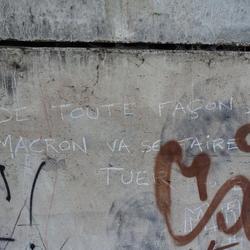 DE TOUTE FAÇON
MACRON VA SE TAIRE
TUER